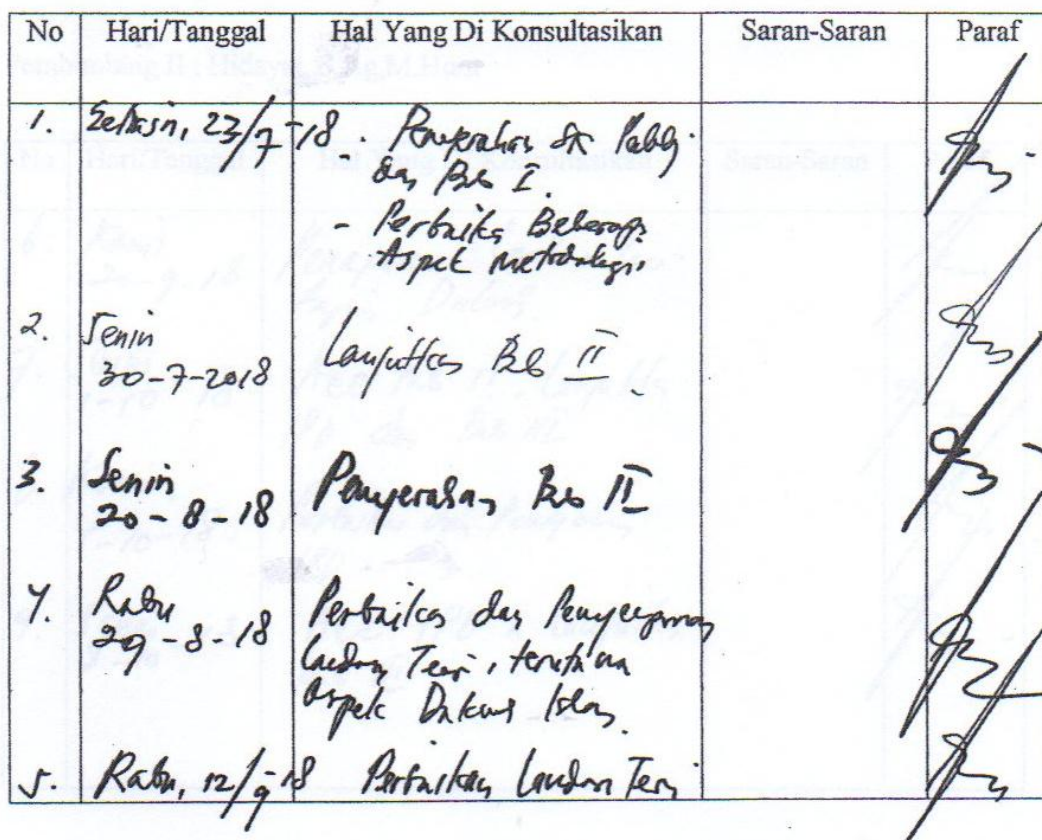 No Hari/Tanggal Hal Yang Di Konsultasikan Saran-Saran Paraf
1. 23/7-18 . Penyerahan SK
Bab I
- Perbaikan Beberapa
Aspek metodologi
2. Senin Lanjutkan Bab II
30-7-2018
3. Senin Penyerahan Bab II
20-8-18
4. Rabu Perbaikan dan Penyempurnaan
29-8-18 Landasan Teori, terutama
aspek Dakwah Islam
5. Rabu, 12/9-18 Perbaikan Landasan Teori